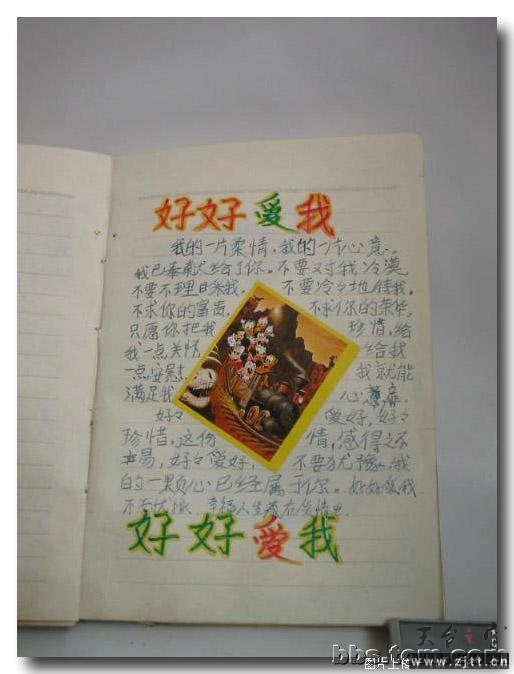 好好爱我
我的一片柔情、我的一片心意。
我已奉献给了你。不要对我冷漠
不要不理目采我. 不要冷々地待我.
不求你的富贵, 不求你的荣华,
只愿你把我 珍惜,给
我一点关情, 给我
一点安慰. 我就能
满足我 心意.
好々 爱好,好々
珍惜,这份 情,感得之不
易,好々爱好, 不要犹豫.我
的一颗心已经属于你。好好爱我
不要犹豫. 幸福人生藏在
好好爱我
天台之窗
bbs.tom.com
图片上传www.zjtt.cn